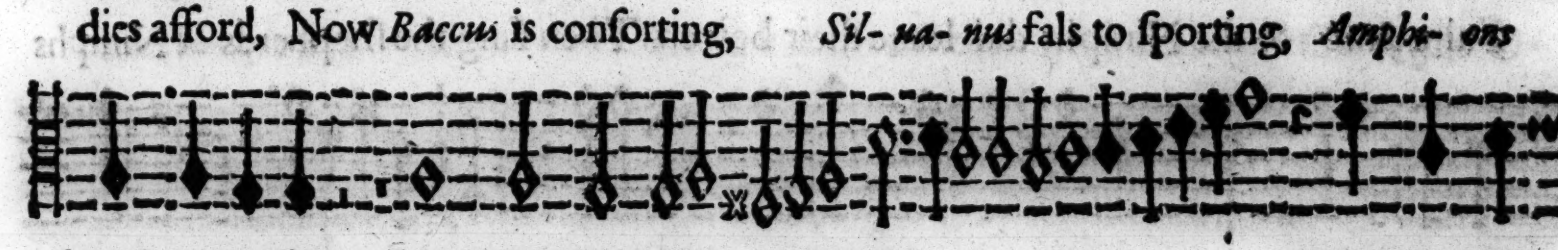 dies afford, Now Baccus is conſorting, Sil- ua- nus fals to ſporting, Amphi- ons